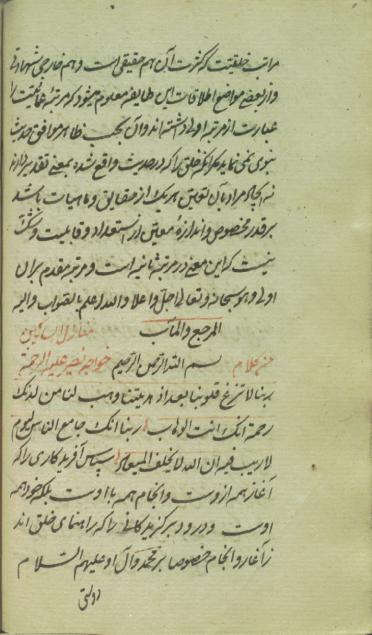 مراتب خلقیت که کثرت آن هم حقیقی است و هم خارجی شهادتی
و از بعضی مواضع اطلاقات این طایفه معلوم میشود که مرتبهٔ عمائیت را
عبارت از مرتبه اولی داشته اند و آن بحسب ظاهر موافق حدیث
نبوی نمی نماید مگر آنکه خلق را که در حدیث واقع شده بمعنی تقدیر دارند
نه ایجاد و مراد بآن تعین هر یک از حقایق و ماهیات باشد
بر قدر مخصوص و اندازهٔ معین در استعداد و قابلیت و شک
نیست که این معنی در مرتبهٔ ثانیه است و مرتبه مقدم بر آن
اولی و هو سبحانه و تعالی اجل و اعلا و الله اعلم بالصواب و الیه
المرجع و المآب
من کلام بسم الله الرحمن الرحیم خواجه نصیر علیه الرحمة
ربنا لا تزغ قلوبنا بعد اذ هدیتنا و هب لنا من لدنک
رحمة انک انت الوهاب ربنا انک جامع الناس لیوم
لا ریب فیه ان الله لا یخلف المیعاد سپاس آفریدکاری را که
آغاز همه ازوست و انجام همه با اوست بلکه خود همه
اوست و درود بر کزیدکانی را که راهنمای خلق اند
ز آغاز و انجام خصوصا بر محمد و آل او علیهم السلام